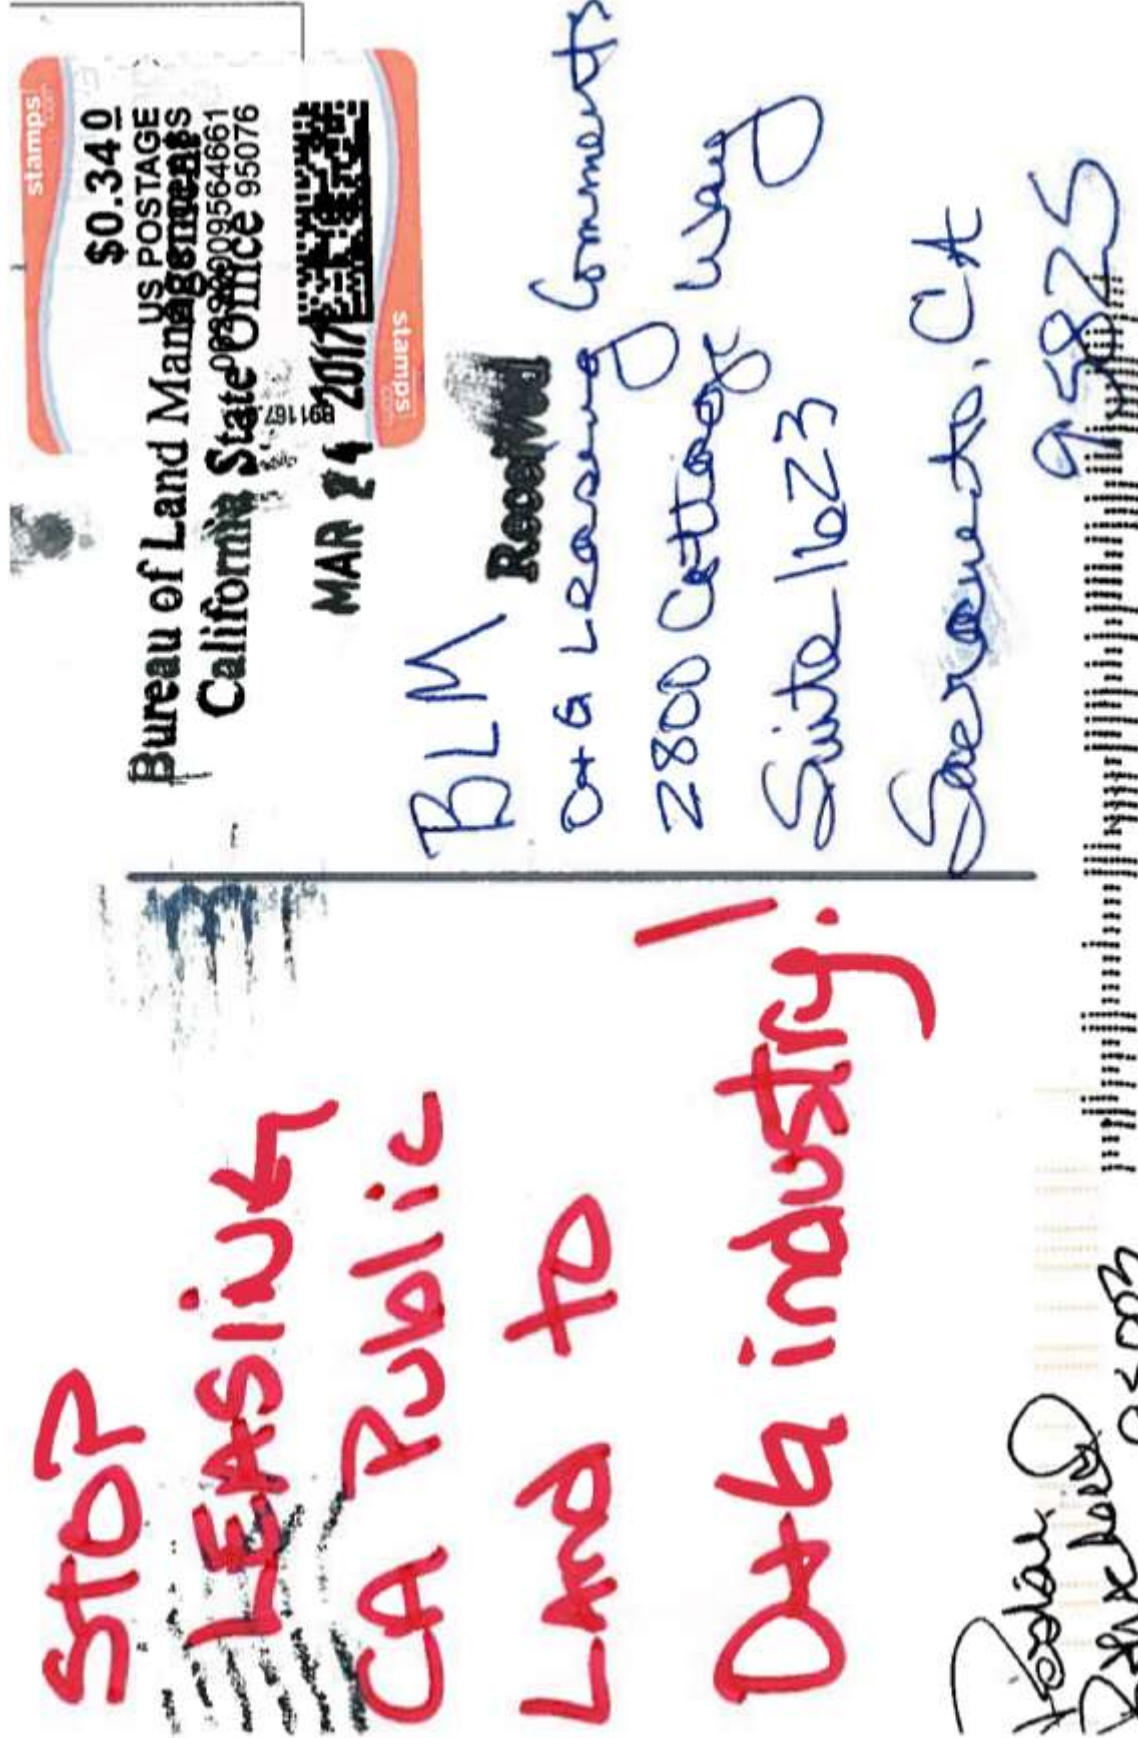 STOP
LEASING
CA Public
Land to
O+G industry!
95003
stamps
.com
$0.340
US POSTAGE
Bureau of Land Management
California State Office
95076
MAR 24 2017
Received
stamps
.com
BLM
O+G Leasing Comments
2800 Cottage Way
Suite 1623
Sacramento, CA
95825